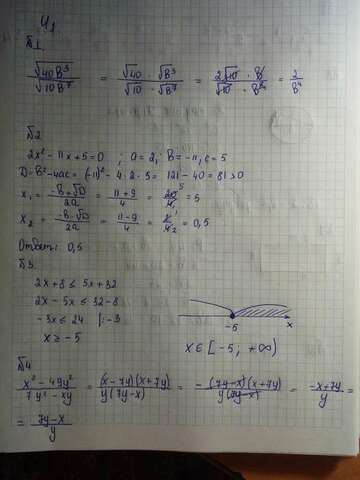 Ч1
Б1
√40B³ / √10B⁷ = √40 · √B³ / √10 · √B⁷ = 2√10 · B / √10 · B⁴ = 2 / B⁴
Б2
2x² - 11x + 5 = 0 , a = 2, B = -11, c = 5
D = B² - 4ac = (-11)² - 4 · 2 · 5 = 121 - 40 = 81 > 0
x₁ = -B + √D / 2a = 11 + 9 / 4 = 20 5 / 4 1 = 5
x₂ = -B - √D / 2a = 11 - 9 / 4 = 2 1 / 4 2 = 0,5
Ответ: 0,5
Б3.
2x + 8 ≤ 5x + 32
2x - 5x ≤ 32 - 8
-3x ≤ 24 |: -3
x ≥ -5
-5 x
x ∈ [-5; +∞)
Б4
x² - 49y² / 7y² - xy = (x - 7y)(x + 7y) / y(7y - x) = - (7y - x)(x + 7y) / y(7y - x) = -x + 7y / y =
= 7y - x / y